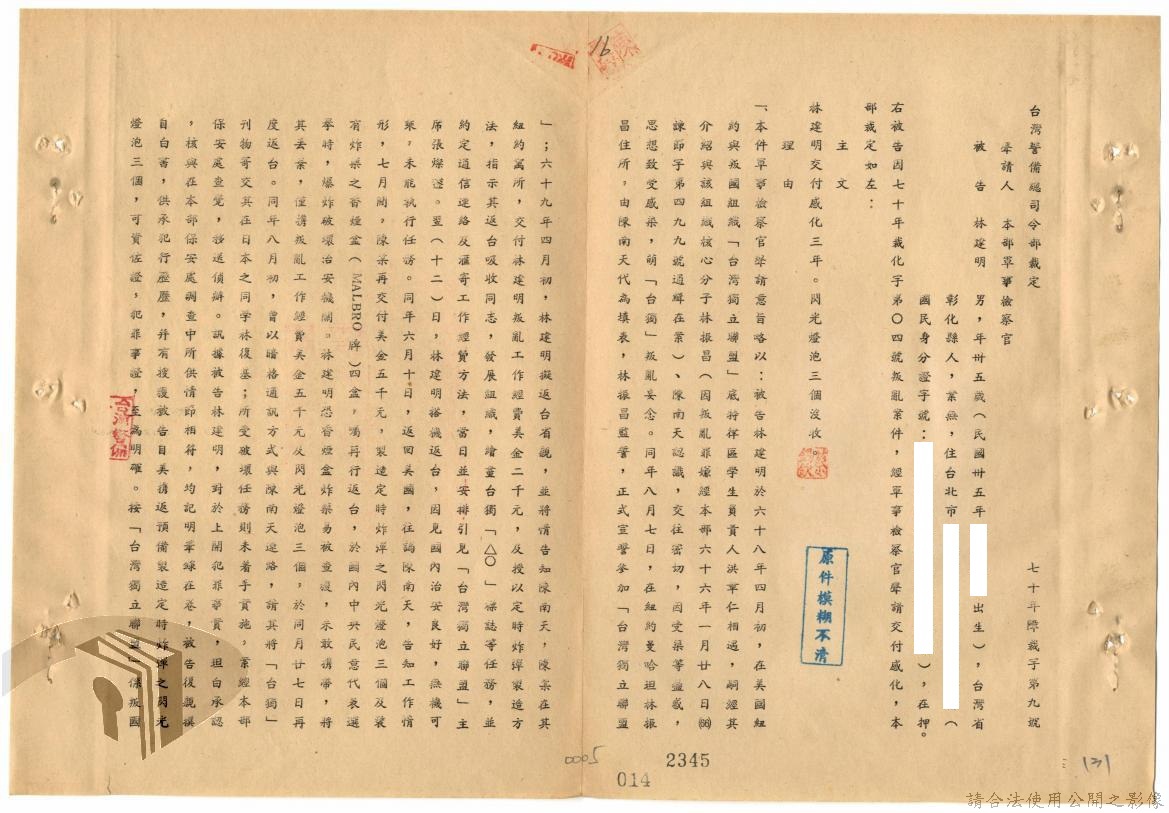 16
台灣警備總司令部裁定
七十年障裁字第九號
聲請人 本部軍事檢察官
被告 林建明 男,年卅五歲(民國卅五年 出生),台灣省
彰化縣人,業無,住台北市 (
國民身分證字號: ),在押。
右被告因七十年裁化字第〇四號叛亂案件,經軍事檢察官聲請交付感化,本
部裁定如左:
主文
林建明交付感化三年。閃光燈泡三個沒收。
理由
一、本件軍事檢察官聲請意旨略以:被告林建明於六十八年四月初,在美國紐
約與叛國組織「台灣獨立聯盟」底特律區學生負責人洪軍仁相遇,嗣經其
介紹與該組織核心分子林振昌(因叛亂罪嫌經本部六十六年一月廿八日
諫節字第四九九號通緝在案)、陳南天認識,交往密切,因受渠等蠱惑,
思想致受感染,萌「台獨」叛亂妄念。同年八月七日,在紐約曼哈坦林振
昌住所,由陳南天代為填表,林振昌監誓,正式宣誓參加「台灣獨立聯盟
」;六十九年四月初,林建明擬返台省親,並將情告知陳南天,陳某在其
紐約寓所,交付林建明叛亂工作經費美金二千元,及授以定時炸彈製造方
法,指示其返台吸收同志,發展組織,繪畫台獨「△〇」標誌等任務,並
約定通信連絡及滙寄工作經費方法,當日並安排引見「台灣獨立聯盟」主
席張燦鍙。翌(十二)日,林建明搭機返台,因見國內治安良好,無機可
乘,未能執行任務。同年六月十日,返回美國,往謁陳南天,告知工作情
形,七月間,陳某再交付美金五千元,製造定時炸彈之閃光燈泡三個及裝
有炸藥之香煙盒(MALBRO牌)四盒,囑再行返台,於國內中央民意代表選
舉時,爆炸破壞治安機關。林建明恐香煙盒炸藥易被查獲,未敢攜帶,將
其丟棄,僅攜叛亂工作經費美金五千元及閃光燈泡三個,於同月廿七日再
度返台。同年八月初,曾以暗格通訊方式與陳南天連絡,請其將「台獨」
刊物寄交其在日本之同學林復基;所受破壞任務則未着手實施,案經本部
保安處查覺,移送偵辦。訊據被告林建明,對於上開犯罪事實,坦白承認
,核與在本部保安處調查中所供情節相符,均記明筆錄在卷,被告復親撰
自白書,供承犯行歷歷,并有搜獲被告自美攜返預備製造定時炸彈之閃光
燈泡三個,可資佐證,犯罪事證,至為明確。按「台灣獨立聯盟」係叛國
原件模糊不清
台灣警備
0005
2345
014
(3)
請合法使用公開之影像